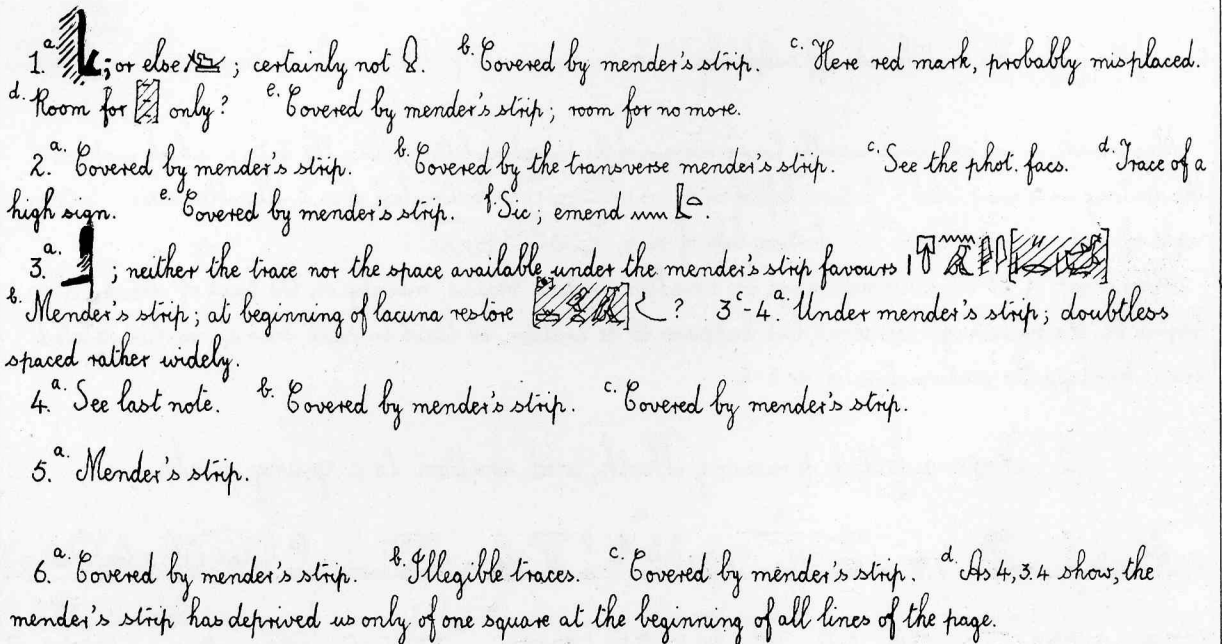 1. a. ; or else ; certainly not . b. Covered by mender's strip. c. Here red mark, probably misplaced.
d. Room for only? e. Covered by mender's strip; room for no more.
2. a. Covered by mender's strip. b. Covered by the transverse mender's strip. c. See the phot. facs. d. Trace of a
high sign. e. Covered by mender's strip. f. Sic; emend .
3. a. ; neither the trace nor the space available under the mender's strip favours
b. Mender's strip; at beginning of lacuna restore ? 3 c - 4 a. Under mender's strip; doubtless
spaced rather widely.
4. a. See last note. b. Covered by mender's strip. c. Covered by mender's strip.
5. a. Mender's strip.
6. a. Covered by mender's strip. b. Illegible traces. c. Covered by mender's strip. d. As 4, 3.4 show, the
mender's strip has deprived us only of one square at the beginning of all lines of the page.